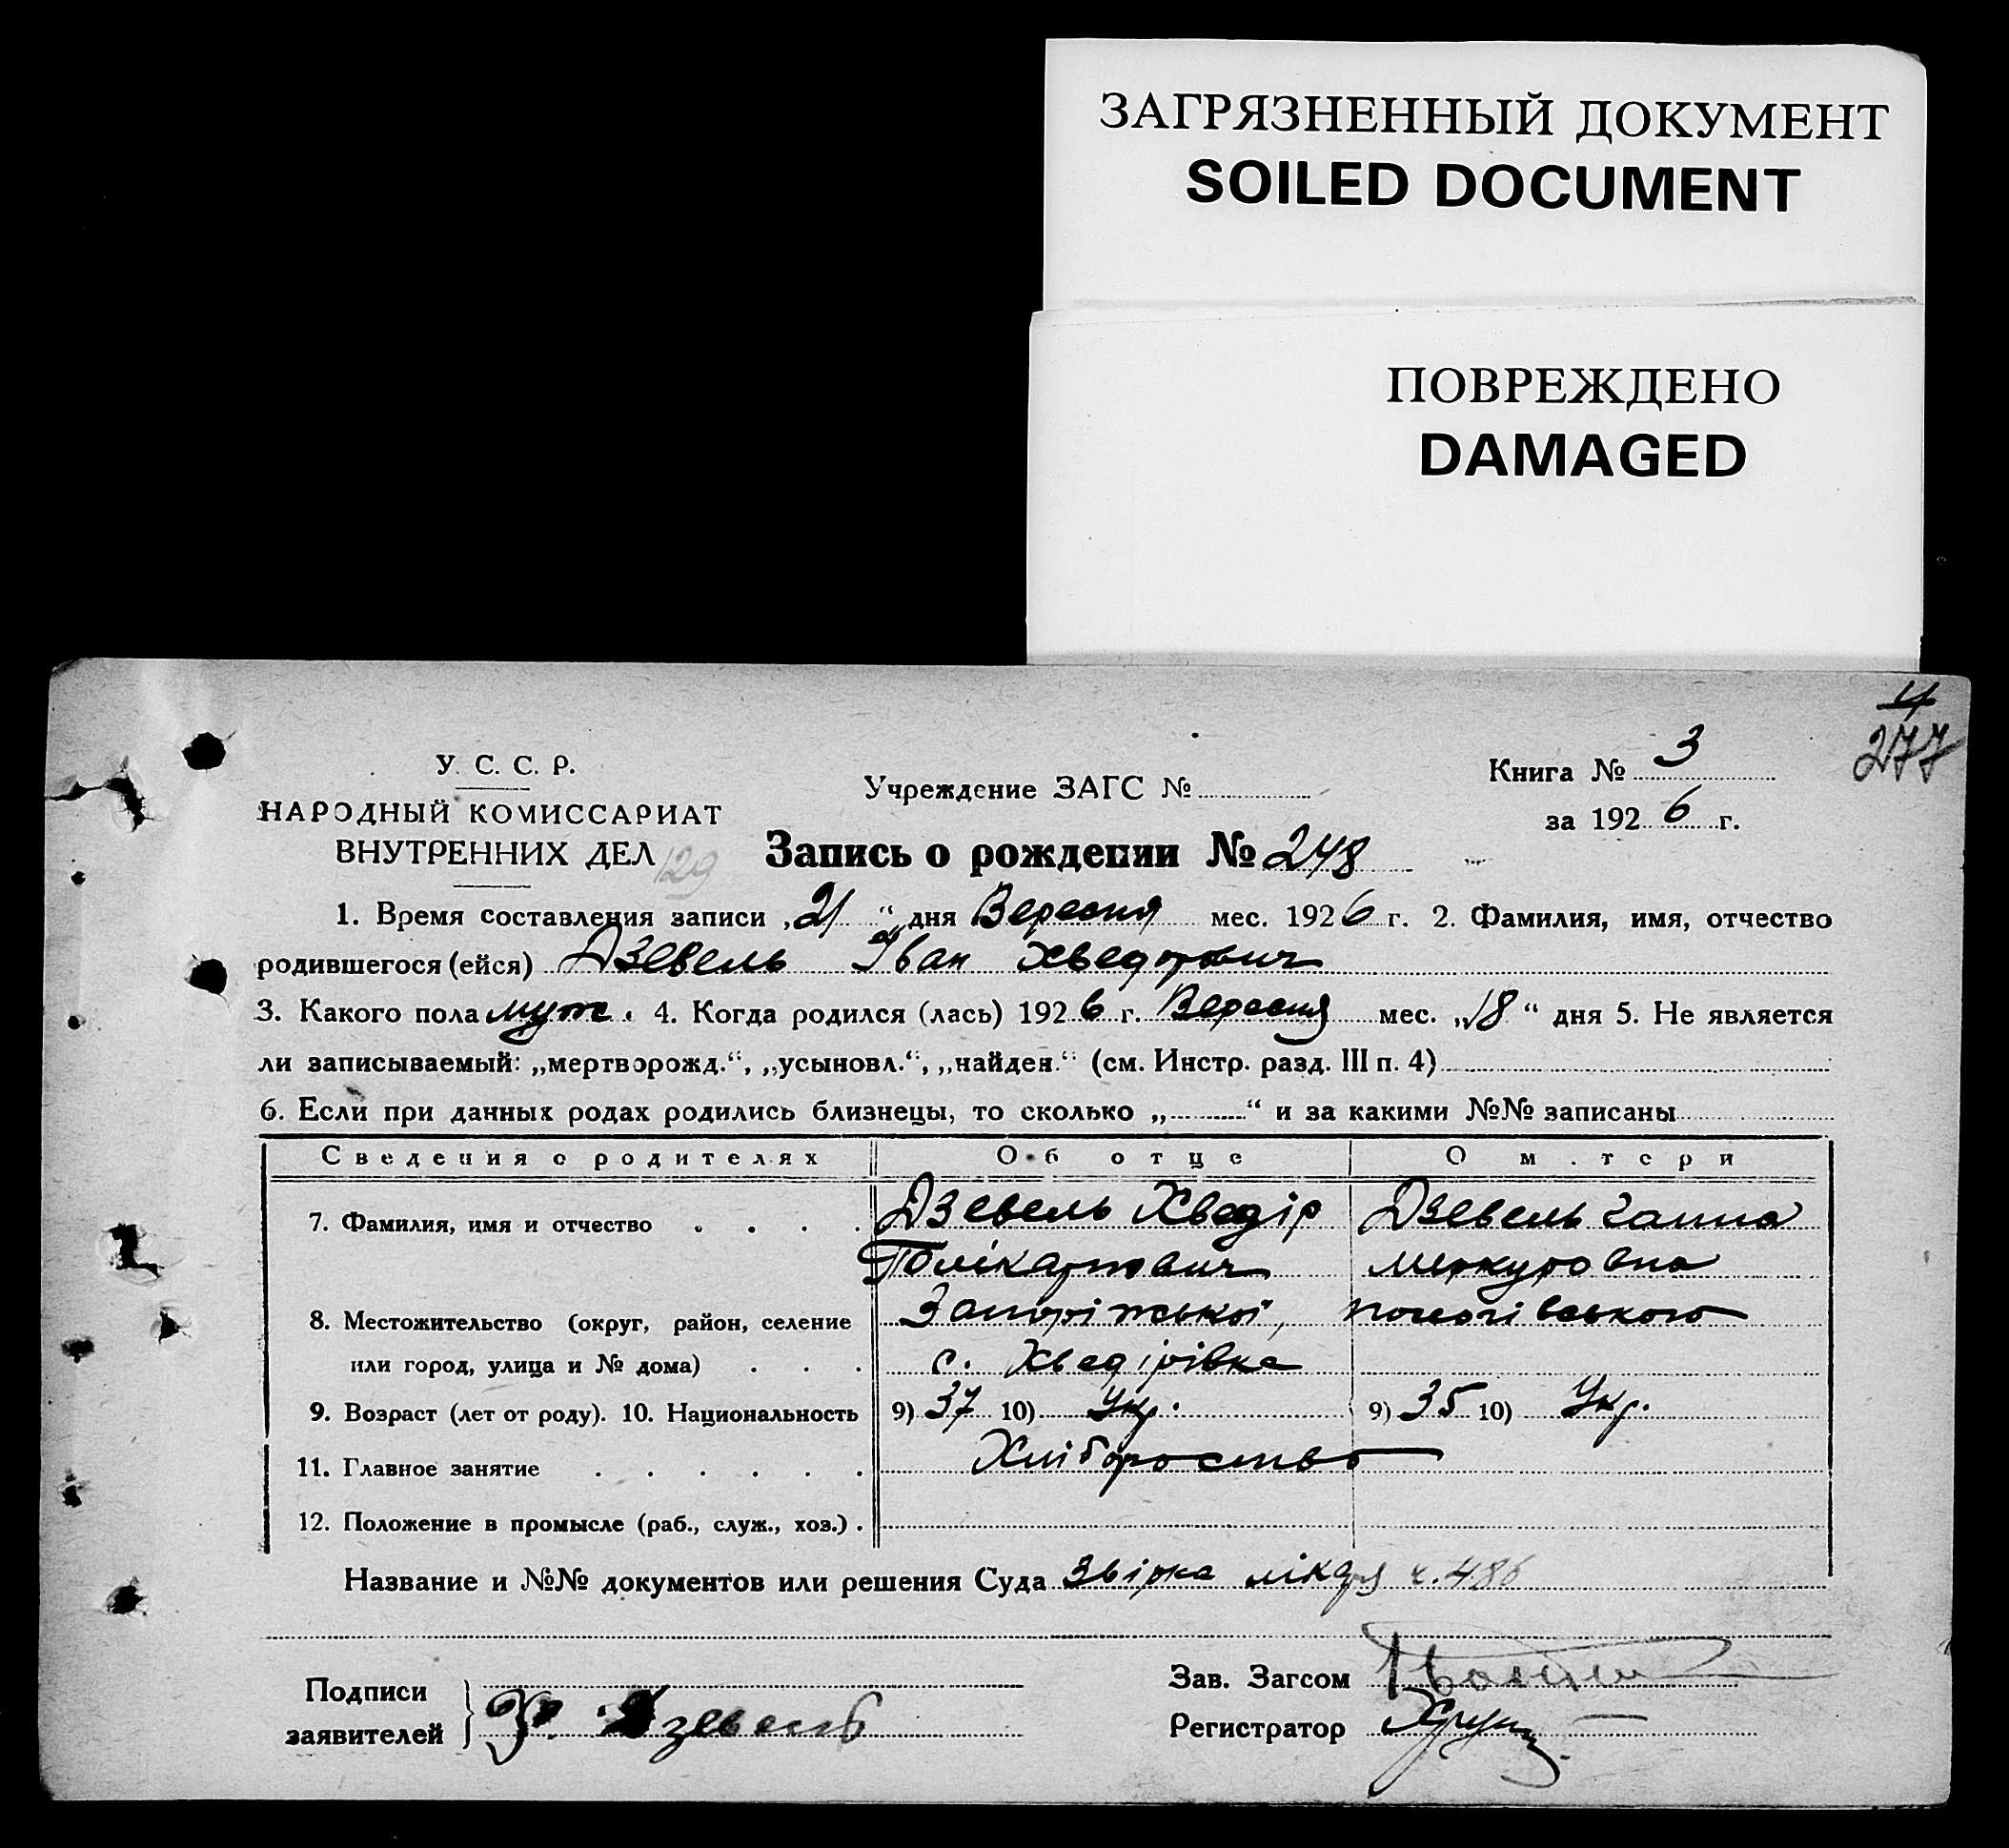 ЗАГРЯЗНЕННЫЙ ДОКУМЕНТ
SOILED DOCUMENT
ПОВРЕЖДЕНО
DAMAGED
4
277
У. С. С. Р.
НАРОДНЫЙ КОМИССАРИАТ
ВНУТРЕННИХ ДЕЛ 129
Учреждение ЗАГС №
Книга № 3
за 1926 г.
Запись о рождении № 248
1. Время составления записи „21“ дня Вересня мес. 1926 г. 2. Фамилия, имя, отчество
родившегося (ейся) Дзевель Іван Хведорович
3. Какого пола муж. 4. Когда родился (лась) 1926 г. Вересня мес. „18“ дня 5. Не является
ли записываемый: „мертворожд.“, „усыновл.“, „найден.“ (см. Инстр. разд. III п. 4)
6. Если при данных родах родились близнецы, то сколько „ “ и за какими №№ записаны
Сведения о родителях Об отце О матери
7. Фамилия, имя и отчество . . . . Дзевель Хведір Дзевель Ганна
Полікарпович Меркуровна
8. Местожительство (округ, район, селение Запоріжської, пологівського
или город, улица и № дома) . . . с. Хведірівка
9. Возраст (лет от роду). 10. Национальность 9) 37 10) Укр. 9) 35 10) Укр.
11. Главное занятие . . . . . . Хліборобство
12. Положение в промысле (раб., служ., хоз.) .
Название и №№ документов или решения Суда Звірка лікаря ч. 486
Подписи
заявителей Х. Дзевель
Зав. Загсом
Регистратор